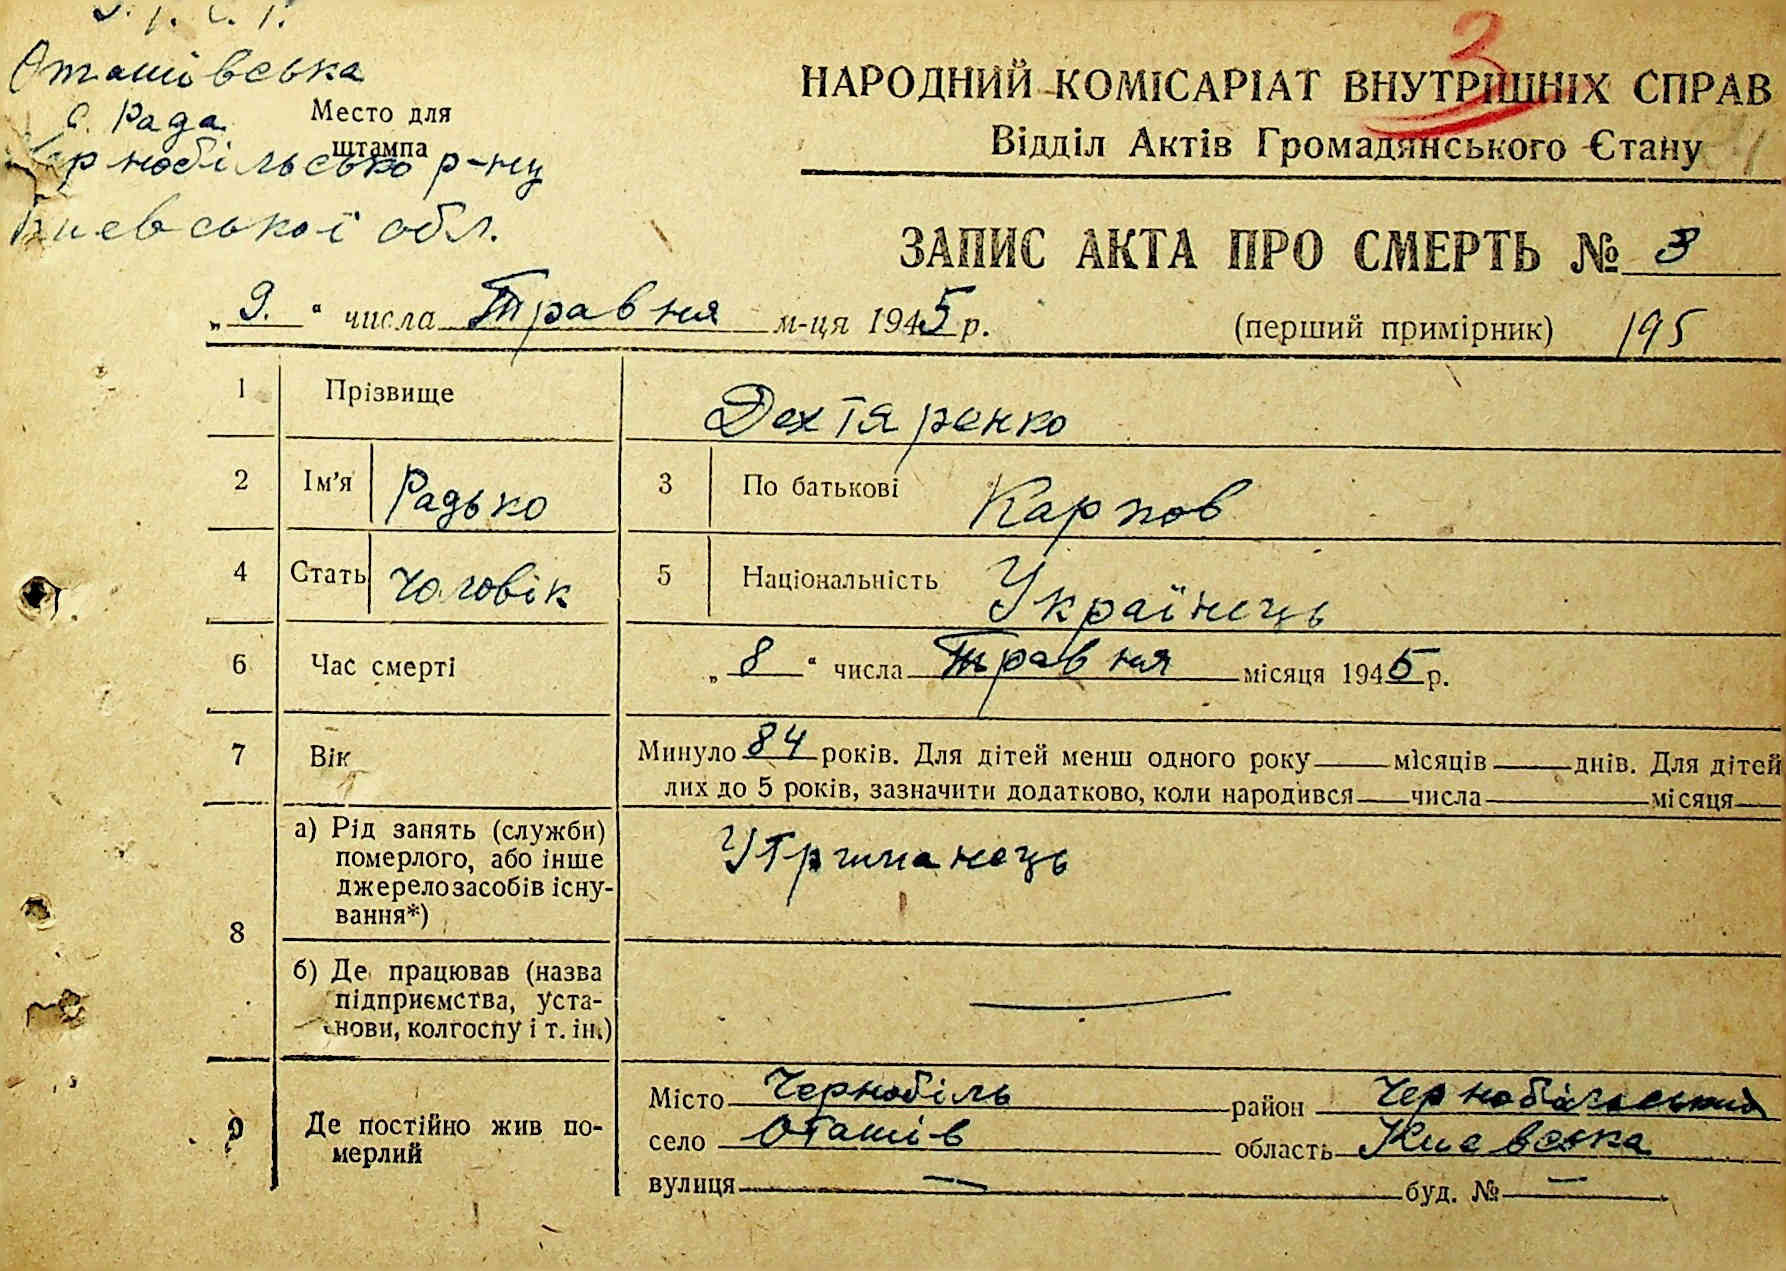 У. Р. С. Р.
Оташівська
с. Рада
Чернобільсько р-ну
Киевської обл.
Место для
штампа
3
НАРОДНИЙ КОМІСАРІАТ ВНУТРІШНІХ СПРАВ
Відділ Актів Громадянського Стану
ЗАПИС АКТА ПРО СМЕРТЬ № 3
„ 9. “ числа Травня м-ця 1945 р. (перший примірник) 195
1 Прізвище Дехтяренко
2 Ім'я Радько 3 По батькові Карпов
4 Стать чоловік 5 Національність Українець
6 Час смерті „ 8 “ числа Травня місяця 1945 р.
7 Вік Минуло 84 років. Для дітей менш одного року місяців днів. Для дітей
лих до 5 років, зазначити додатково, коли народився числа місяця
8 а) Рід занять (служби)
померлого, або інше
джерело засобів існу-
вання*)
Утриманець
б) Де працював (назва
підприємства, уста-
нови, колгоспу і т. ін.)
—
9 Де постійно жив по-
мерлий
Місто Чернобіль район Чернобільський
село Оташів область Киевська
вулиця — буд. № —